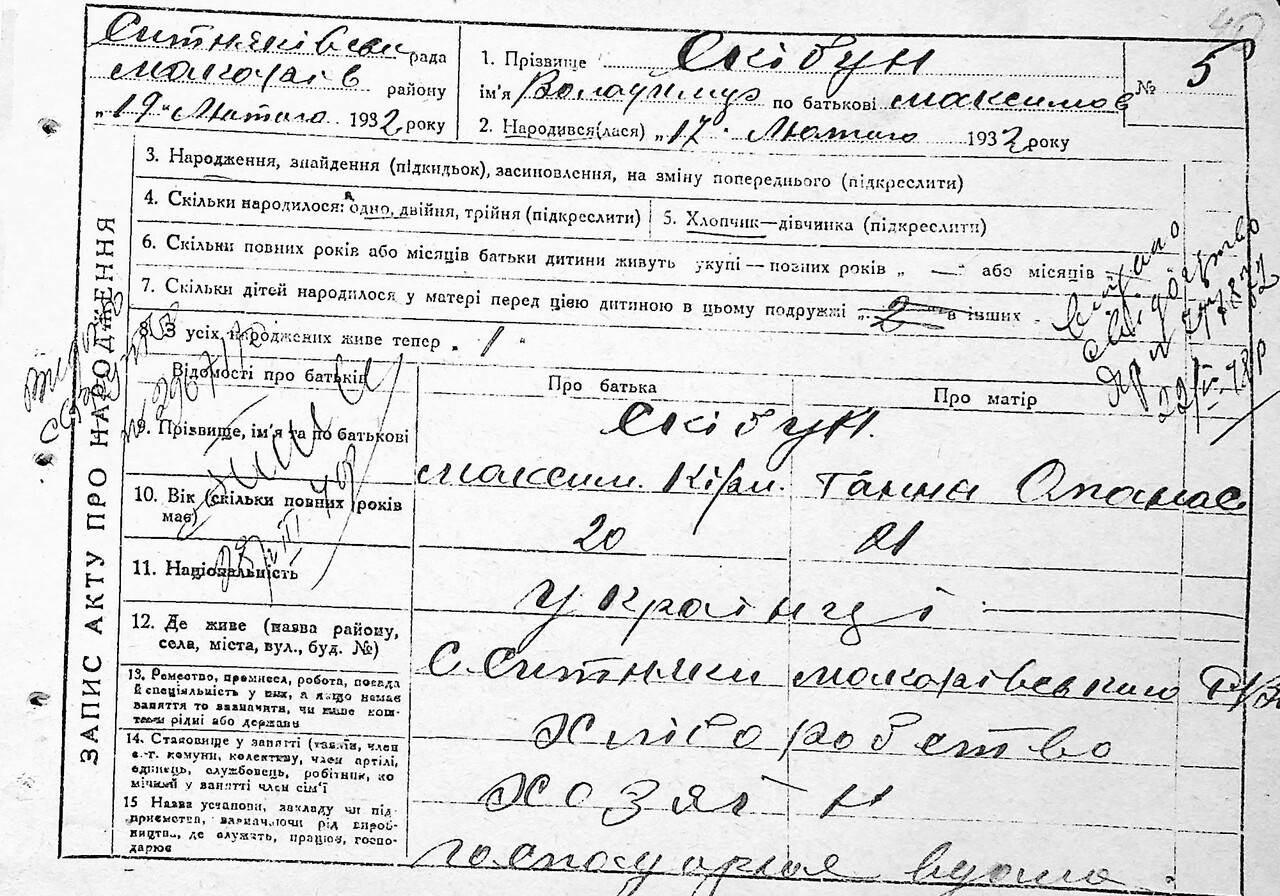 Ситняківськ рада
Макарів району
„19“ Лютого 1932 року
1. Прізвище Скібун
ім'я Володимир по батькові Максимов
2. Народився(лася) „17“ Лютого 1932 року
№ 5
ЗАПИС АКТУ ПРО НАРОДЖЕННЯ
3. Народження, знайдення (підкидьок), засиновлення, на зміну попереднього (підкреслити)
4. Скільки народилося: одно, двійня, трійня (підкреслити)
5. Хлопчик—дівчинка (підкреслити)
6. Скільни повних років або місяців батьки дитини живуть укупі — повних років „ — “ або місяців „
7. Скільки дітей народилося у матері перед цією дитиною в цьому подружжі „ 2 “ в інших
8. З усіх народжених живе тепер „ 1 “
видано
свідоцтво
22/
Відомості про батьків
Про батька
Про матір
9. Прізвище, ім'я та по батькові
Скібун
Максим Кірил. Ганна Опанас
10. Вік (скільки повних років має)
20 21
11. Національність
українці
12. Де живе (назва району,
села, міста, вул., буд. №)
С. Ситняки Макарівського
13. Ремество, промисел, робота, посада
й спеціальність у них, а якщо немає
заняття то зазначити, чи живе кош-
тами рідні або держави
Хліборобство
14. Становище у занятті (хазяїн, член
с.-г. комуни, колективу, член артілі,
одинець, службовець, робітник, по
мічний у занятті член сім'ї
Хозяїн
15 Назва установи, закладу чи під-
приємства, зазначаючи рід вироб-
ництва, де служать, працює, госпо-
дарює
господарює вдома